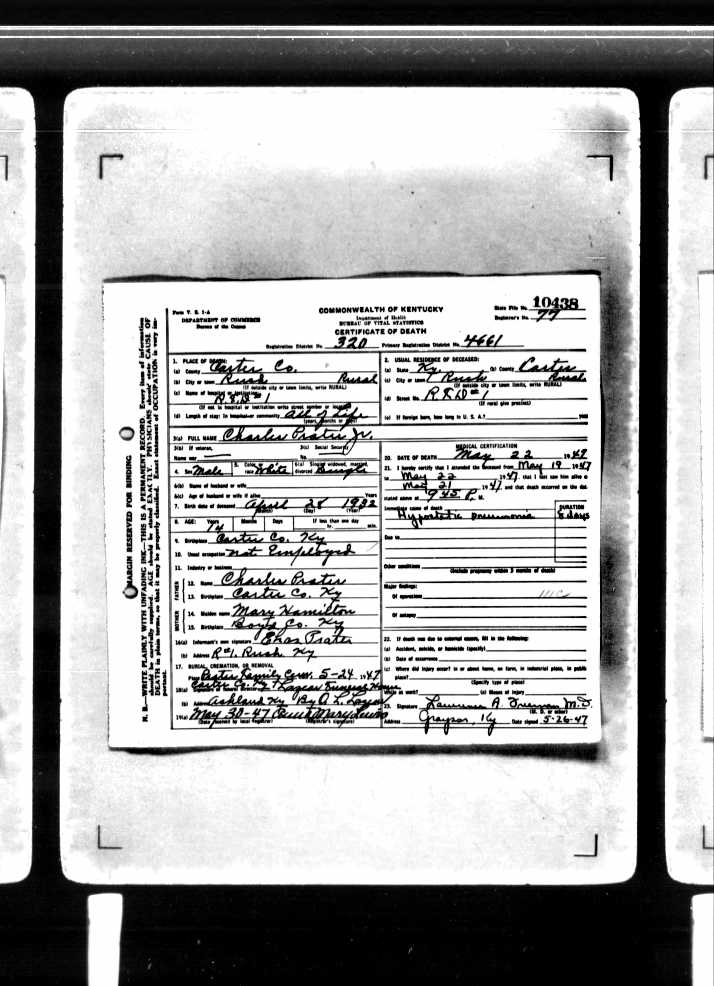 Form V. S. 1-A
DEPARTMENT OF COMMERCE
Bureau of the Census
COMMONWEALTH OF KENTUCKY
Department of Health
BUREAU OF VITAL STATISTICS
CERTIFICATE OF DEATH
State File No. 10438
Registrar's No. 77
Registration District No. 320 Primary Registration District No. 4661
MARGIN RESERVED FOR BINDING
N. B.—WRITE PLAINLY WITH UNFADING INK—THIS IS A PERMANENT RECORD. Every item of information
should be carefully supplied. AGE should be stated EXACTLY. PHYSICIANS should state CAUSE OF
DEATH in plain terms, so that it may be properly classified. Exact statement of OCCUPATION is very im-
portant.
1. PLACE OF DEATH:
(a) County Carter Co.
(b) City or town Rush Rural
(If outside city or town limits, write RURAL)
(c) Name of hospital or institution:
R.F.D. #1
(If not in hospital or institution write street number or location)
(d) Length of stay: In hospital or community All of Life
(years, months or days)
2. USUAL RESIDENCE OF DECEASED:
(a) State Ky. (b) County Carter
(c) City or town Rush Rural
(If outside city or town limits, write RURAL)
(d) Street No. R.F.D. #1
(If rural give precinct)
(e) If foreign born, how long in U. S. A.?
3(a) FULL NAME Charles Prater Jr.
3(b) If veteran,
Name war
3(c) Social Security
No.
4. Sex Male 5. Color or race White 6(a) Single, widowed, married, divorced Single
6(b) Name of husband or wife
6(c) Age of husband or wife if alive Years
7. Birth date of deceased April 28 1932
(Month) (Day) (Year)
8. AGE: Years Months Days If less than one day
14 hr. min.
9. Birthplace Carter Co. Ky
10. Usual occupation not Employed
11. Industry or business
FATHER
12. Name Charles Prater
13. Birthplace Carter Co. Ky
MOTHER
14. Maiden name Mary Hamilton
15. Birthplace Boyd Co. Ky
16(a) Informant's own signature Chas Prater
(b) Address R#1. Rush Ky
17. BURIAL, CREMATION, OR REMOVAL
Place Family Cem. 5-24 1947
Carter Co. Ky
18(a) Signature of funeral director Lazear Funeral Home
(b) Address Ashland Ky By
19(a) May 30-47
(Date received by local registrar) (Registrar's signature)
MEDICAL CERTIFICATION
20. DATE OF DEATH May 22 1947
21. I hereby certify that I attended the deceased from May 19 1947
to May 22 1947, that I last saw him alive on
May 21 1947 and that death occurred on the date
stated above at 9:45 P. M.
Immediate cause of death
Hypostatic pneumonia
DURATION
days
Due to
Other conditions
(Include pregnancy within 3 months of death)
Major findings:
Of operations
Of autopsy
22. If death was due to external causes, fill in the following:
(a) Accident, suicide, or homicide (specify)
(b) Date of occurrence
(c) Where did injury occur? in or about home, on farm, in industrial place, in public
place?
(Specify type of place)
While at work? (e) Means of injury
23. Signature Lawrence A. M.D.
(M. D. or other)
Address Grayson, Ky Date signed 5-26-47